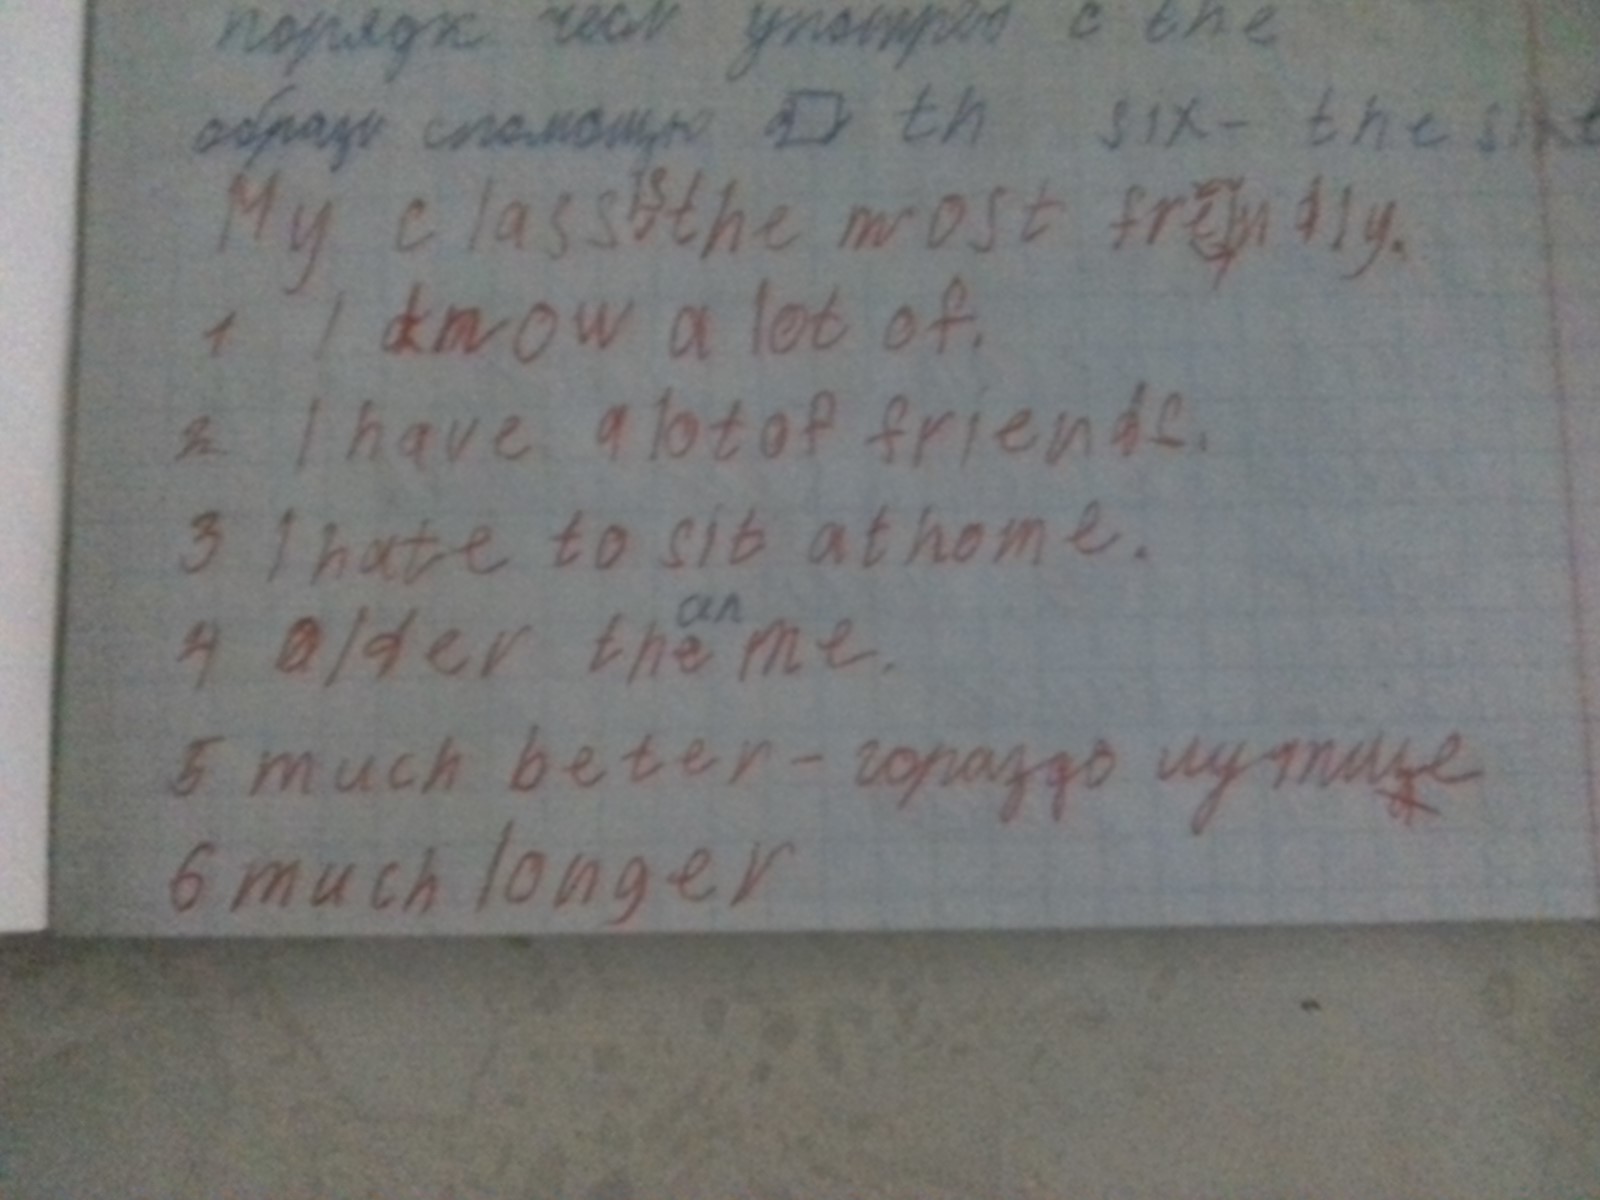 порядк чесл употреб с the
образ спомощью th six- the sixt
My class is the most friendly.
1 I know a lot of.
2 I have a lot of friends.
3 I hate to sit at home.
4 older than me.
5 much beter - гораздо лутше
6 much longer